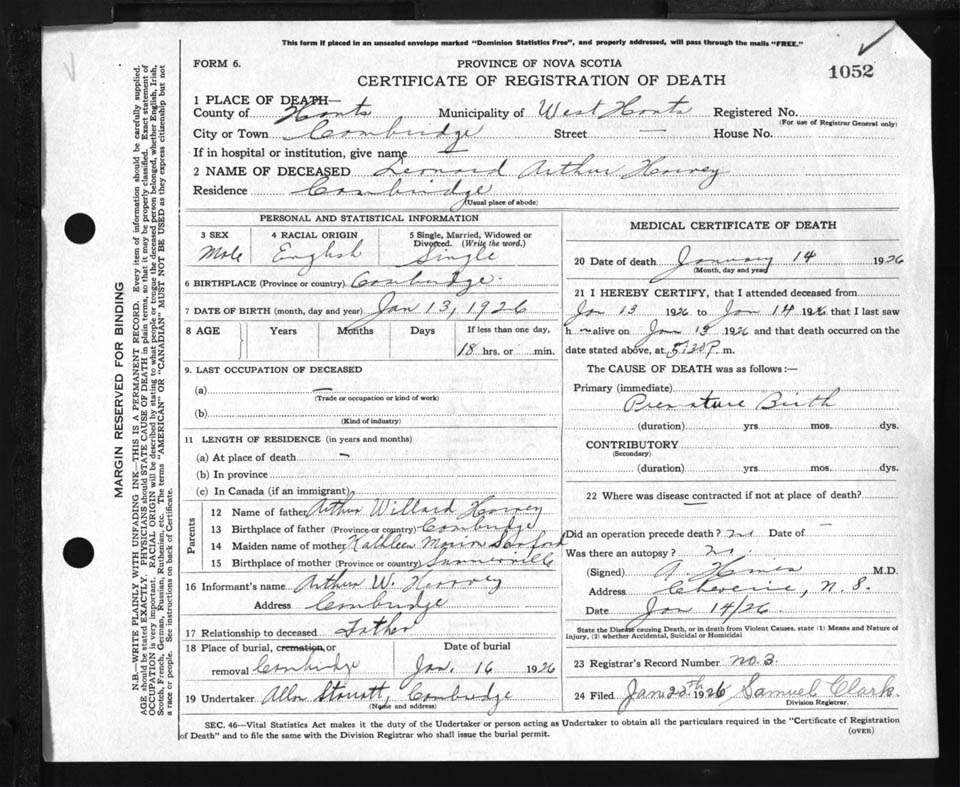 This form if placed in an unsealed envelope marked "Dominion Statistics Free", and properly addressed, will pass through the mails "FREE."
FORM 6.
PROVINCE OF NOVA SCOTIA
CERTIFICATE OF REGISTRATION OF DEATH
1052
1 PLACE OF DEATH—
County of Hants Municipality of West Hants Registered No.
(For use of Registrar General only)
City or Town Cambridge Street — House No.
If in hospital or institution, give name —
2 NAME OF DECEASED Leonard Arthur Harvey
Residence Cambridge
(Usual place of abode)
PERSONAL AND STATISTICAL INFORMATION
3 SEX 4 RACIAL ORIGIN 5 Single, Married, Widowed or Divorced. (Write the word.)
Male English Single
6 BIRTHPLACE (Province or country) Cambridge
7 DATE OF BIRTH (month, day and year) Jan 13, 1926
8 AGE Years Months Days If less than one day,
18 hrs. or min.
9. LAST OCCUPATION OF DECEASED
(a) —
(Trade or occupation or kind of work)
(b)
(Kind of industry)
11 LENGTH OF RESIDENCE (in years and months)
(a) At place of death —
(b) In province
(c) In Canada (if an immigrant)
Parents
12 Name of father Arthur Willard Harvey
13 Birthplace of father (Province or country) Cambridge
14 Maiden name of mother Kathleen Marion Sanford
15 Birthplace of mother (Province or country) Summerville
16 Informant's name Arthur W. Harvey
Address Cambridge
17 Relationship to deceased Father
18 Place of burial, cremation, or removal Cambridge
Date of burial
Jan. 16 1926
19 Undertaker Allan Cambridge
(Name and address)
MEDICAL CERTIFICATE OF DEATH
20 Date of death January 14 1926
(Month, day and year)
21 I HEREBY CERTIFY, that I attended deceased from
Jan 13 1926 to Jan 14 1926 that I last saw
h alive on Jan 13 1926 and that death occurred on
date stated above, at 5:30 P. m.
The CAUSE OF DEATH was as follows:—
Primary (immediate)
Premature Birth
(duration) yrs. mos. dys.
CONTRIBUTORY
(Secondary)
(duration) yrs. mos. dys.
22 Where was disease contracted if not at place of death?
—
Did an operation precede death? no Date of —
Was there an autopsy? no.
(Signed) A. M.D.
Address Cheverie, N.S.
Date Jan 14/26.
State the Disease causing Death, or in death from Violent Causes, state (1) Means and Nature of
Injury, (2) whether Accidental, Suicidal or Homicidal
23 Registrar's Record Number no. 3
24 Filed Jan 20th 1926 Samuel Clark.
Division Registrar.
SEC. 46—Vital Statistics Act makes it the duty of the Undertaker or person acting as Undertaker to obtain all the particulars required in the "Certificate of Registration
of Death" and to file the same with the Division Registrar who shall issue the burial permit.
(OVER)
MARGIN RESERVED FOR BINDING
N.B.—WRITE PLAINLY WITH UNFADING INK—THIS IS A PERMANENT RECORD. Every item of information should be carefully supplied.
AGE should be stated EXACTLY. PHYSICIANS should STATE CAUSE OF DEATH in plain terms, so that it may be properly classified. Exact statement of
OCCUPATION is very important. RACIAL ORIGIN will be described by stating to what people or tongue the deceased person belonged, whether English, Irish,
Scotch, French, German, Russian, Ruthenian, etc. The terms "AMERICAN" OR "CANADIAN" MUST NOT BE USED as they express citizenship but not
a race or people. See instructions on back of Certificate.